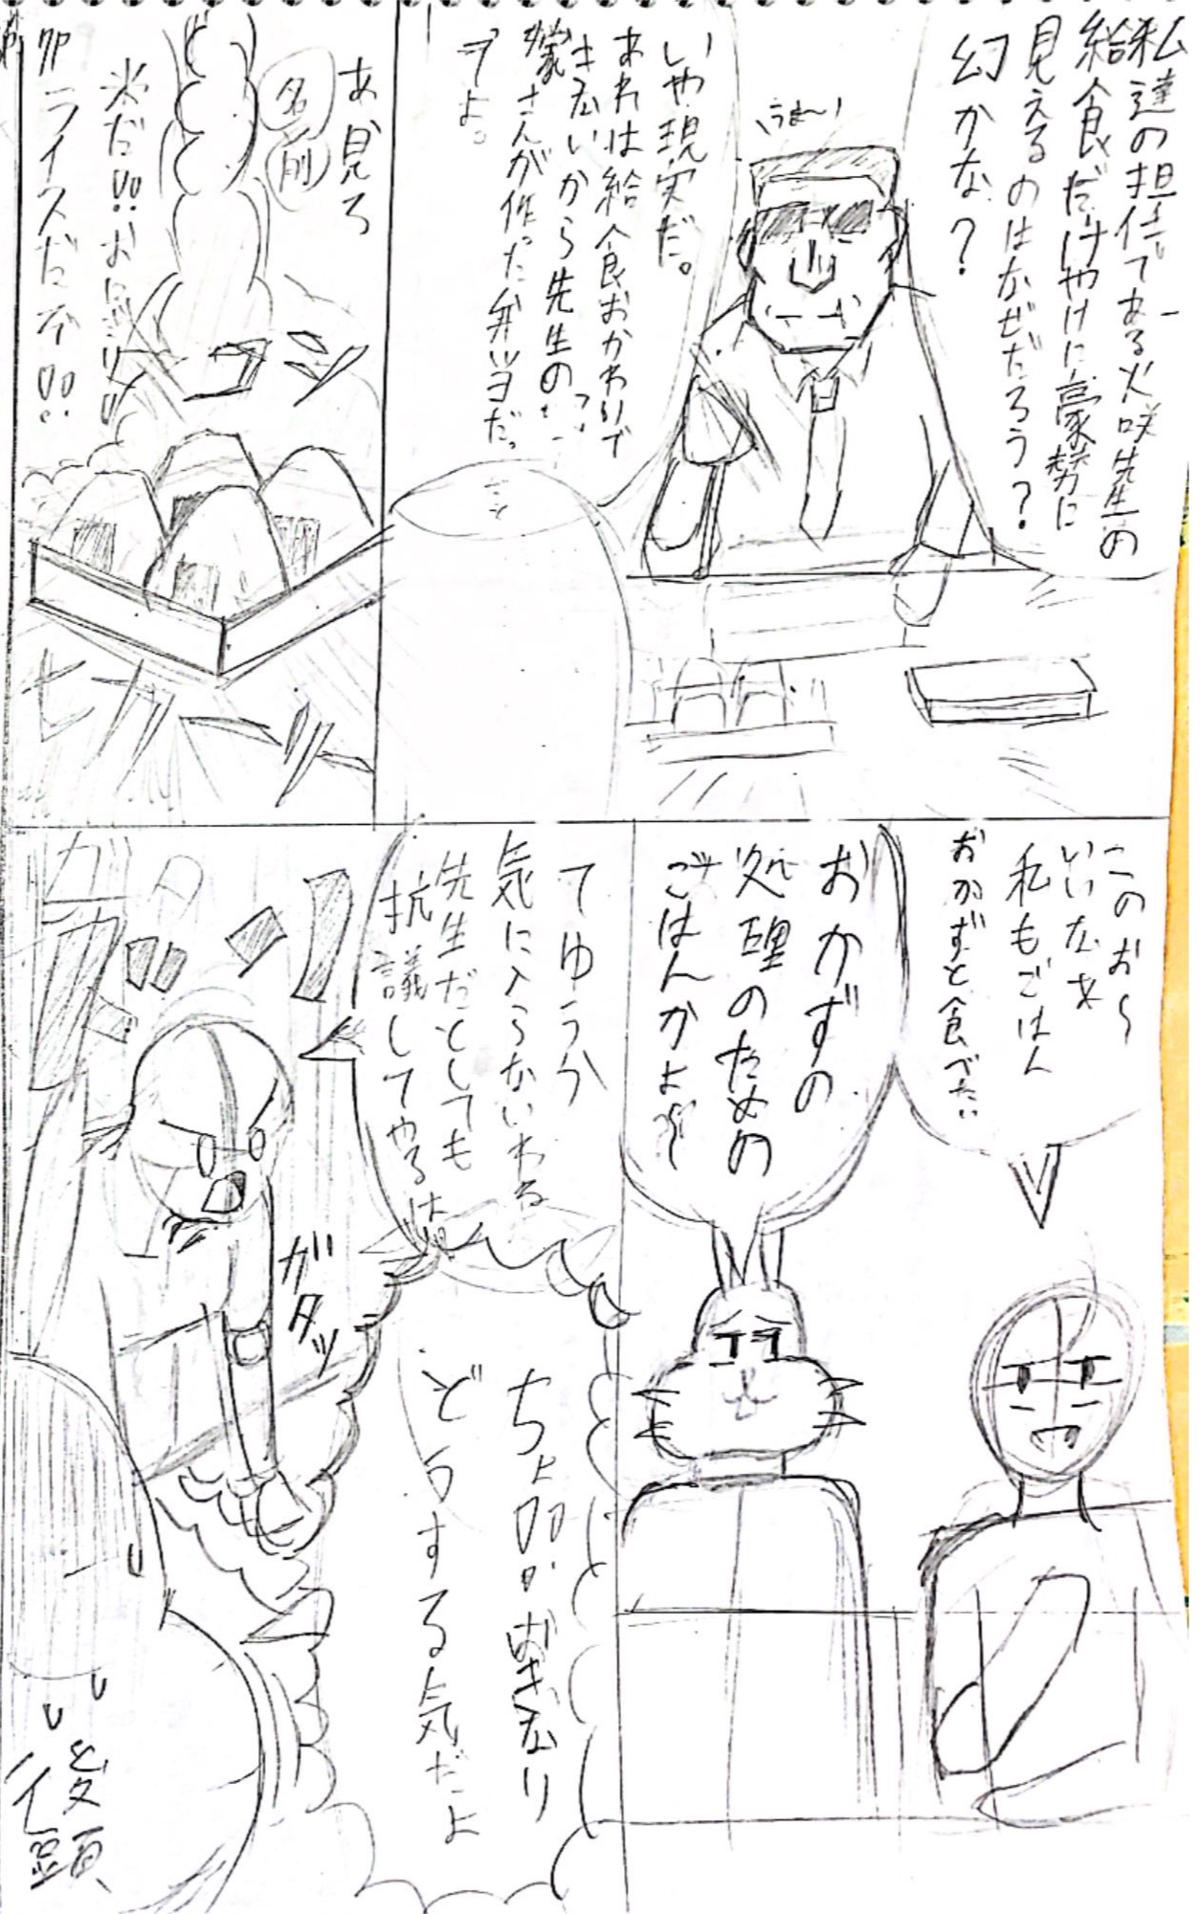 私達の担任である火咲先生の
給食だけやけに豪勢に
見えるのはなぜだろう?
幻かな?
うまい
いや現実だ。
あれは給食おかわりで
先生の
さんが作った弁当だ
あ見ろ
名前
米だ!!おにぎり
ライスだ
ピカーッ
このお〜
いいなぁ
私もごはん
おかずと食べたい
おかずの
処理のための
ごはんかよ
てゆうか
気に入らないわね
先生だとしても
抗議してやるは
ガタッ
どうする気だよ
後頭